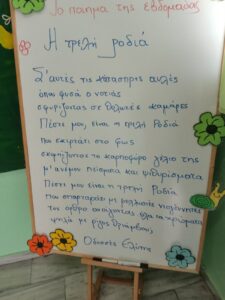 Το ποίημα της εβδομάδας
Η τρελή ροδιά
Σ'αυτές τις κάτασπρες αυλές
όπου φυσά ο νοτιάς
σφυρίζοντας σε θολωτές καμάρες
Πέστε μου, είναι η τρελή Ροδιά
που σκιρτάει στο φως
σκορπίζοντας το καρποφόρο γέλιο της
μ'ανέμου πείσματα και ψιθυρίσματα
Πέστε μου είναι η τρελή Ροδιά
που σπαρταράει με φυλλωσιές νιογέννητες
τον όρθρο ανοίγοντας όλα τα χρώματα
ψηλά με ρίγος θριάμβου;
Οδυσσέας Ελύτης